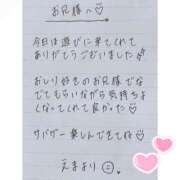 お兄様へ♡
今日は遊びに来てくれて
ありがとうございました
おしり好きのお兄様でな
でてもらいながら気持ちよ
くなってくれて良かった♡
サバサー楽しんできてね♡
えまより☺